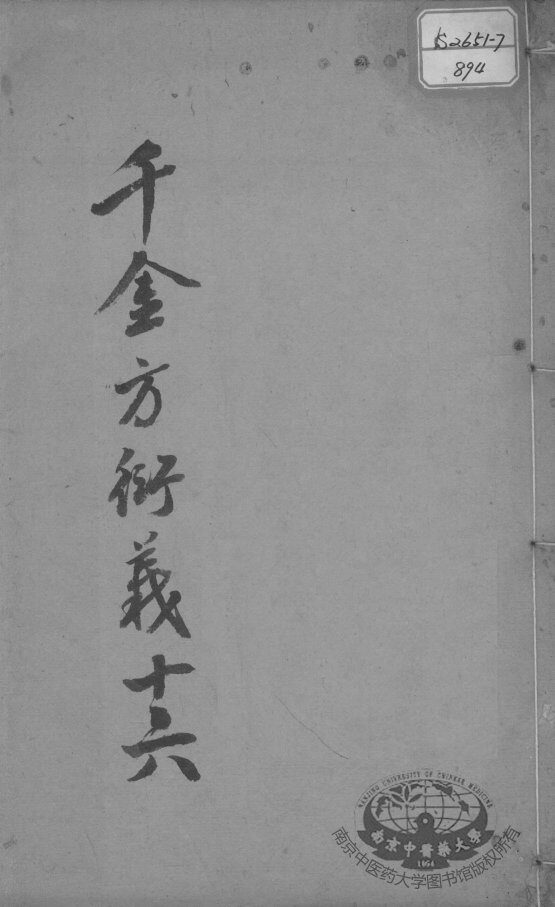 S2651-7
894
千金方衍義十六
NANJING UNIVERSITY OF CHINESE MEDICINE
南京中醫藥大學
1954
南京中医药大学图书馆版权所有